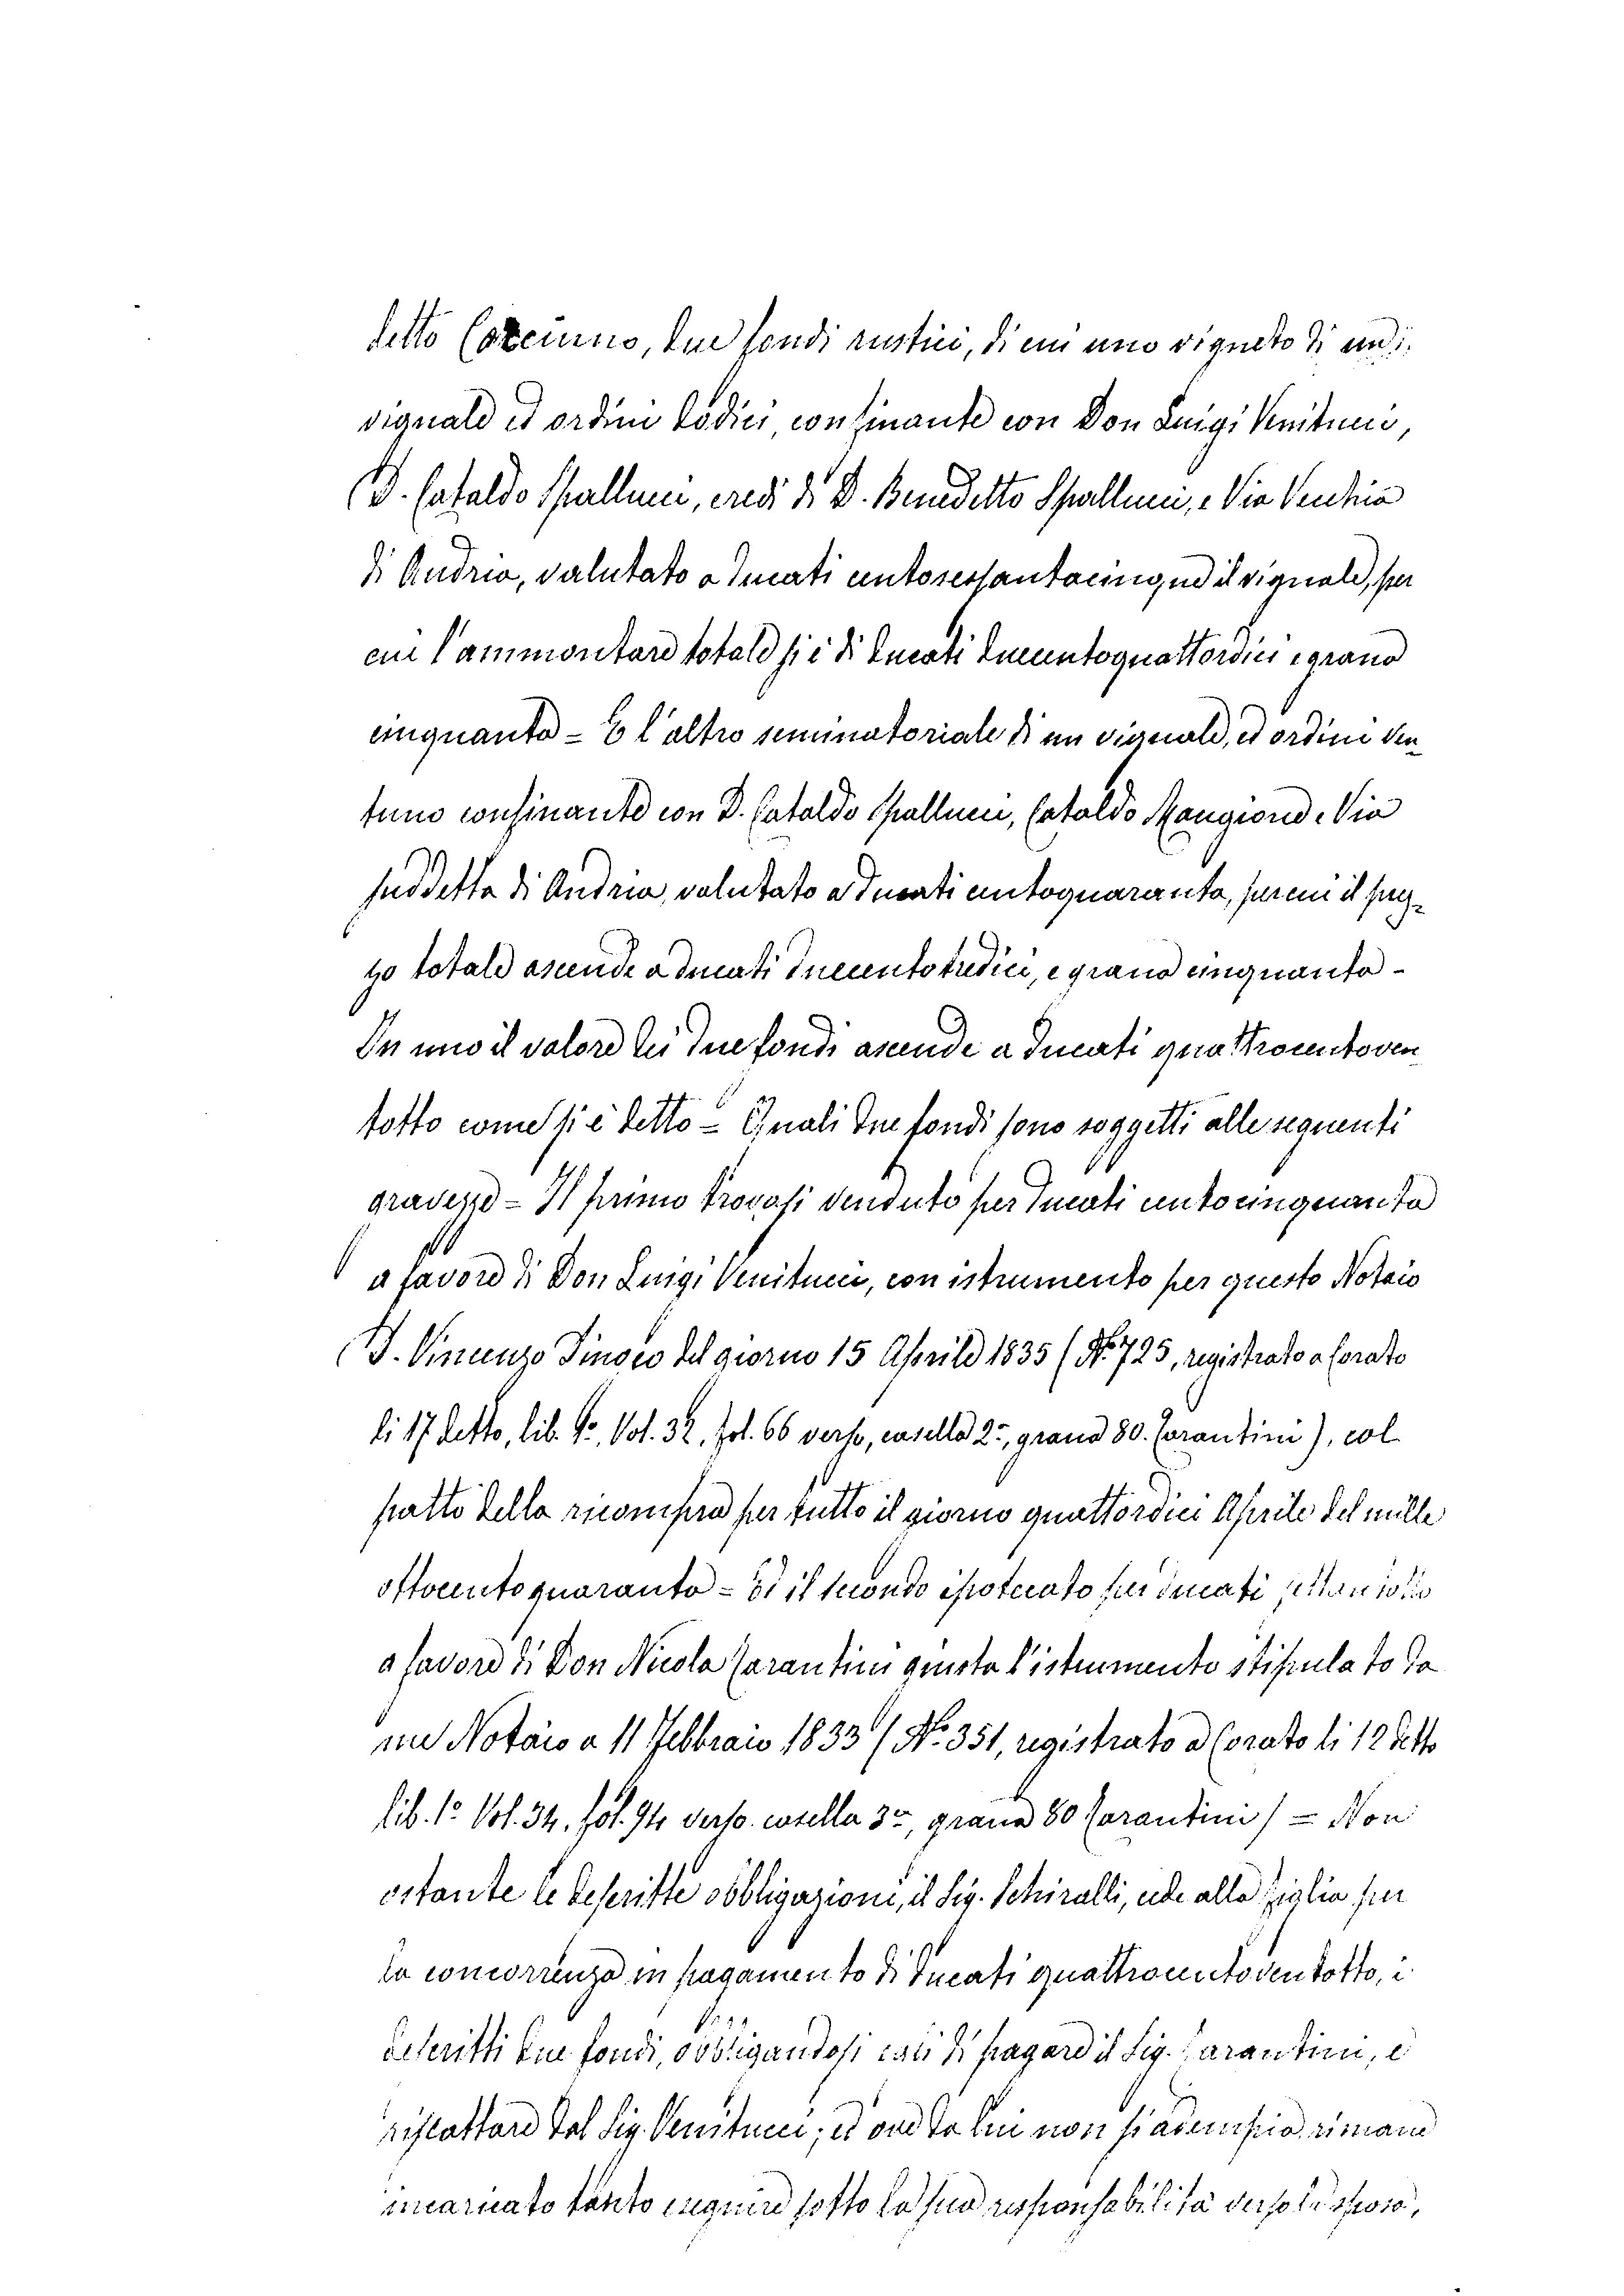 detto Corcinno, due fondi rustici, di cui uno vigneto di un
vignale ed ordini dodici, confinante con Don Luigi Venitucci,
D. Cataldo Spallucci, eredi di D. Benedetto Spallucci, e Via Vecchia
di Andria, valutato a ducati centosessantacinque il vignale, per
cui l'ammontare totale si è di ducati ducentoquattordici e grana
cinquanta = E l'altro seminatoriale di un vignale, ed ordini ven-
tuno confinante con D. Cataldo Spallucci, Cataldo Mangione e Via
suddetta di Andria, valutato a ducati centoquaranta, per cui il prez-
zo totale ascende a ducati ducentotredici, e grana cinquanta -
In uno il valore dei due fondi ascende a ducati quattrocentoven
totto come si è detto = Quali due fondi sono soggetti alle seguenti
gravezze = Il primo trovasi venduto per ducati centocinquanta
a favore di Don Luigi Venitucci, con istrumento per questo Notaio
D. Vincenzo Sinoio del giorno 15 Aprile 1835 (N.º 725, registrato a Corato
li 17 detto, lib. 1º, Vol. 32, fol. 66 verso, casella 2ª, grana 80. Carantini), col
patto della ricompra per tutto il giorno quattordici Aprile del mille
ottocentoquaranta = Ed il secondo ipotecato per ducati settantotto
a favore di Don Nicola Carantini giusta l'istrumento stipulato da
me Notaio a 11 Febbraio 1833 (N.º 351, registrato a Corato li 12 detto
lib. 1º Vol. 34. fol. 94 verso. casella 3ª, grana 80 Carantini) = Non
ostante le descritte obbligazioni, il Sig. Schiralli, cede alla figlia per
la concorrenza in pagamento di ducati quattrocentoventotto, i
descritti due fondi, obbligandosi egli di pagare il Sig. Carantini, e
riscattare dal Sig. Venitucci; ed ove da lui non si adempia, rimane
incaricato tanto eseguire sotto la sua responsabilità verso la sposa,